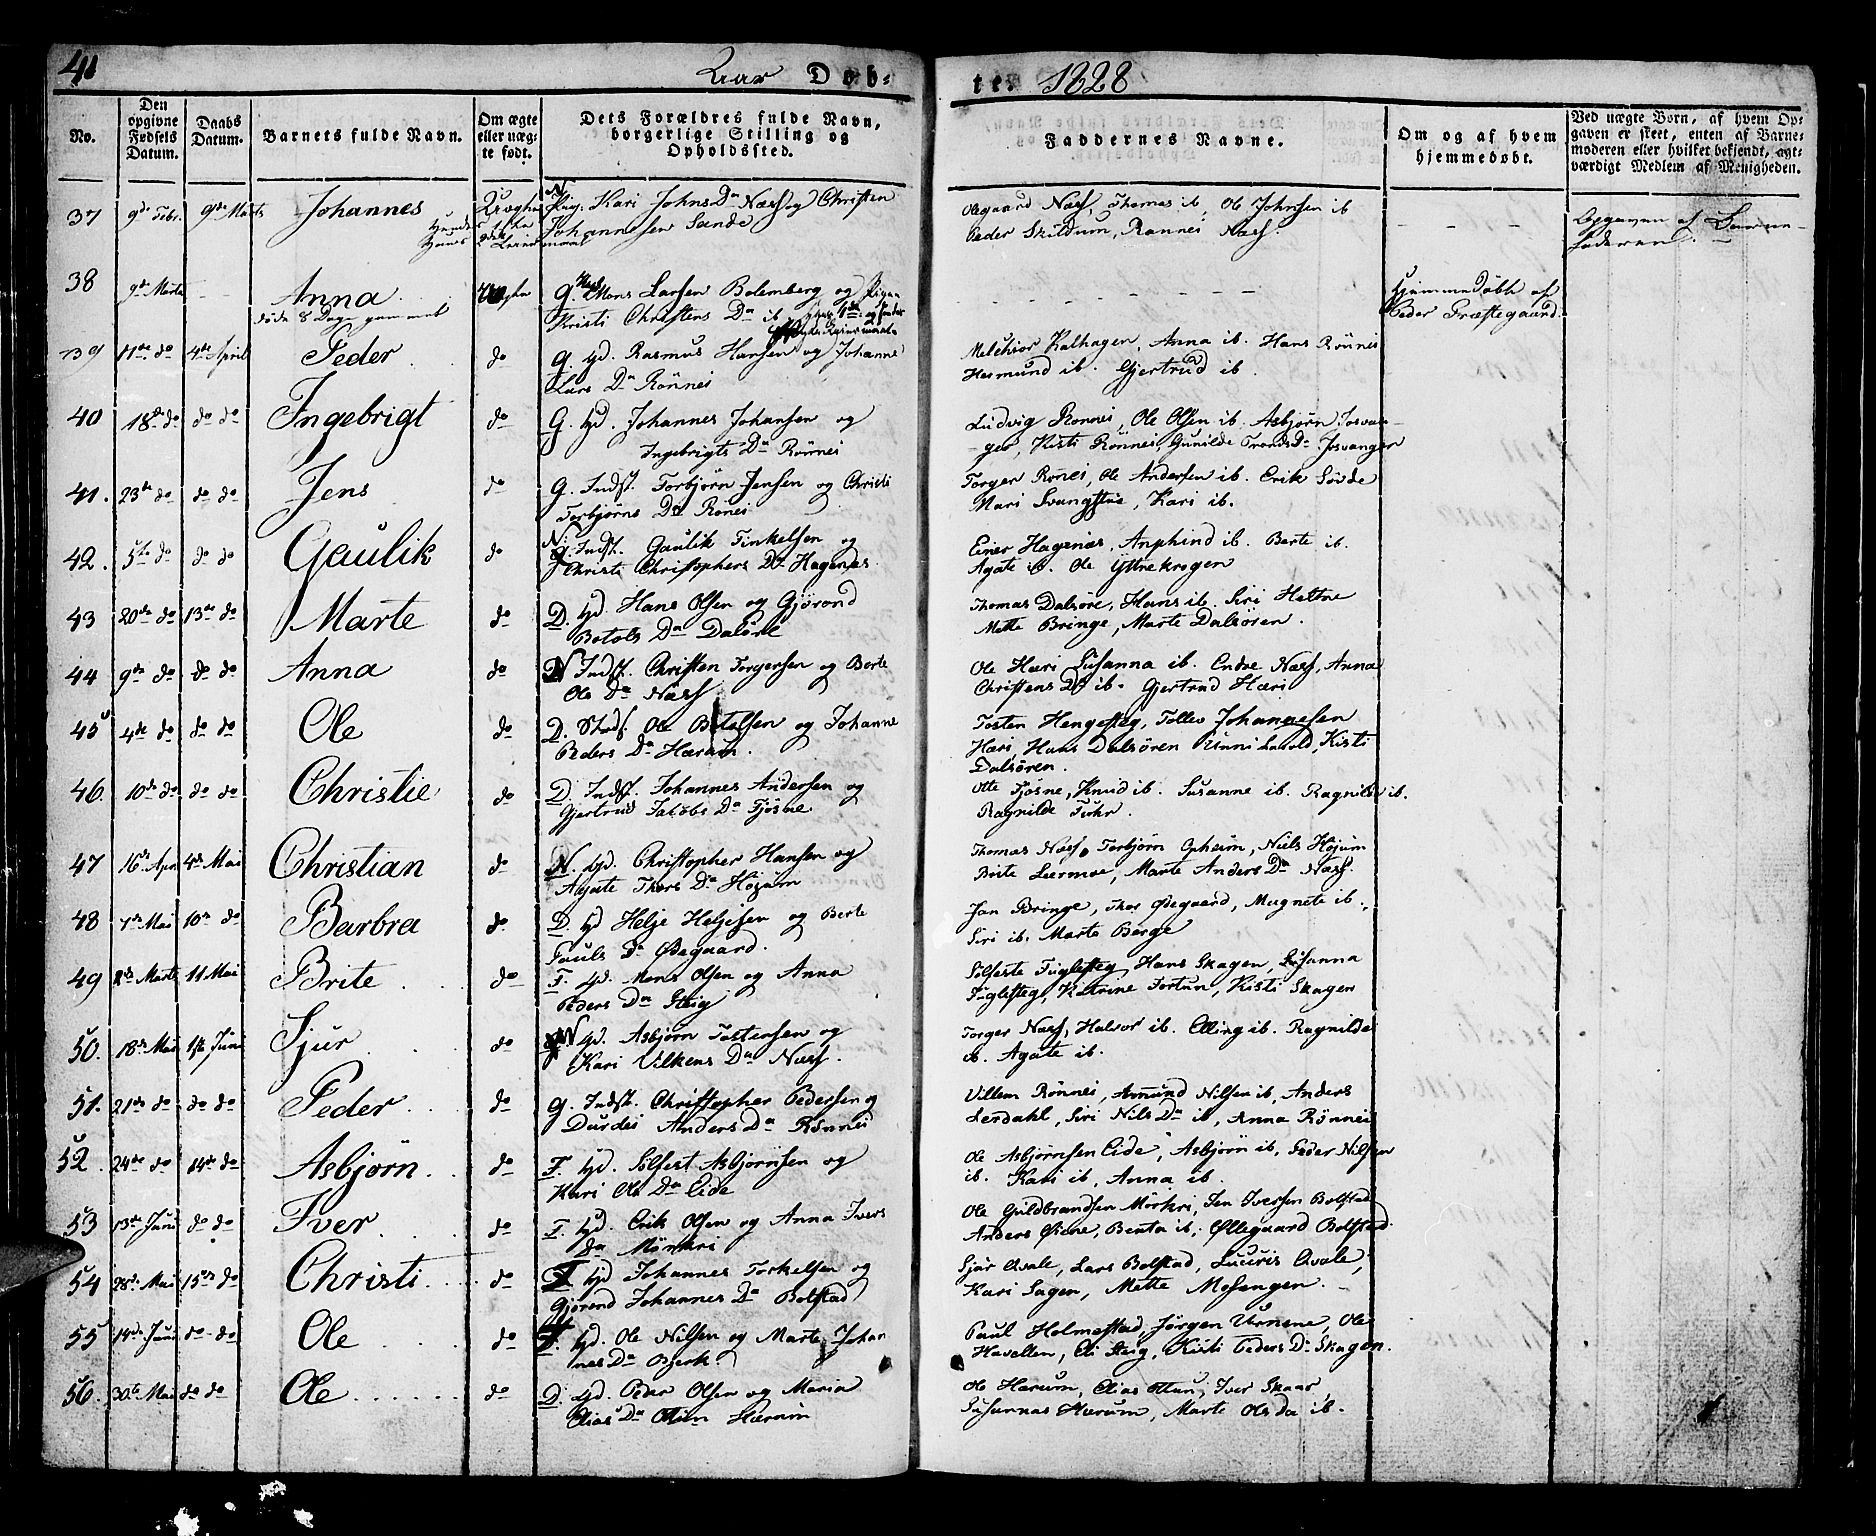 41 Aar Døb-
te. 1828
No.
Den opgivne Fødsels Datum.
Daabs Datum.
Barnets fulde Navn.
Om ægte eller uægte født.
Dets Forældres fulde Navn, borgerlige Stilling og Opholdssted.
Faddernes Navne.
Om og af hvem hjemmedøbt.
Ved uægte Børn, af hvem Opgaven er skeet, enten af Barnemoderen eller hvilket bekjendt, agtværdigt Medlem af Menigheden.
37 9de Febr. 9de Marts Johannes Uægte Pig. Kari Johns Dr Næss og Christen
Johannesen Sande
Olegaard Næss, Thomas ib. Ole Johnsen ib
Peder Skildum, Rannei Næss.
Opgaven af Barne-
faderen.
38 9de Marts Anna Uægte G. Mons Larsen Bolemberg og Pigen
døde 8 Dage gammel Kristi Christens Dr ib
Hjemmedøbt af
Peder Præstegaard.
39 11te do 4de April Peder do G. Hd. Rasmus Hansen og Johanne
Lars Dr Rönnei
Melchior Kalhagen, Anna ib. Hans Rönnei
Hermund ib. Gjertrud ib.
40 18de do do do Ingebrigt do G. Hd. Johannes Johansen og
Ingebrigts Dr Rönnei
Ludvig Rönnei, Ole Olsen ib. Asbjørn Josvan-
ger, Kisti Rönnei, Gunilde Tronds Dr Josvanger
41. 23de do do do Jens do G. Indst. Torbjörn Jensen og Christi
Torbjörns Dr Rönei
Torger Rönei, Ole Andersen ib. Erik Sövde
Mari Svangstue, Kari ib.
42. 5te do do do Gaulik do N. Indst. Gaulik Tinkelsen og
Christi Christophers Dr Hagenæs.
Einer Hagenæs, Anphind ib. Berte ib.
Agate ib. Ole Yttrekrogen
43 20de do 13de do Marte do D. Hd Hans Olsen og Gjörond
Botols Dr Dalsöre
Thomas Dalsöre, Hans ib. Siri Hettne
Mette Bringe, Marte Dalsören.
44 9de do do do Anna do N Indst. Christen Torgersen og Berte
Ole Dr Næss
Ole Hæri Susanna ib. Endre Næss, Anna
Christens Dr ib. Gjertrud Hæri
45 4de do do do Ole do D. Ole Botolsen og Johanne
Peders Dr Hærum.
Tosten Hengesteg, Tollev Johannesen
Hæri, Hans Dalsören, Kisti
Dalsören.
46. 10de do do do Christie do D. Indst. Johannes Andersen og
Gjertrud Jacobs Dr Fjösne
Otte Fjösne, Knud ib. Susanne ib. Ragnilde ib.
Ragnilde Fuhr.
47 16de Apr 4de Mai Christian do N. Hd. Christopher Hansen og
Agate Thors Dr Højum
Thomas Næss, Torbjörn Opheim, Niels Højum
Brite Leermoe, Marte Anders Dr Næss.
48 7de Mai 10de do Barbra do D. Hd Helje Heljesen og Berte
Pauls Dr Ødegaard.
Jan Bringe, Thor Ødegaard, Magnete ib.,
Siri ib. Marte Berge
49 Marts 11 Mai Brite do F. Hd. Mons Olsen og Anna
Peders Dr Steig
Sölfeste Fuglesteg, Hans Skagen, Susanna
Fuglesteg, Katrine Fortun, Kisti Skagen
50. 18de Mai 1ste Juni Sjur do N Hd. Asbjørn Tostensen og
Kari Vilkens Dr Næss.
Torger Næss, Halvor ib. Elling ib. Ragnilde
ib. Agate ib.
51. 21de do do do Peder do G. Indst. Christopher Pedersen og
Durdei Anders Dr Rönnei
Villem Rönnei, Amund Nilsen ib, Anders
Lerdahl, Siri Nils Dr ib, Anna Rönnei
52. 24de do 14de do Asbjørn do F. Hd. Sölfest Asbjørnsen og
Kari Ole Dr Eide
Ole Asbjørnsen Eide, Asbjørn ib. Peder Nilsen
ib. Kari ib, Anna ib.
53 13de Juni do do Iver do F. Hd. Erik Olsen og Anna Ivers
Dr Mörkri
Ole Guldbrandsen Mörkri, Iversen Bolstad
Anders Øiene, Benta ib, Øllegaard Bolstad.
54 28de Mai 15de do Christi do F Hd Johannes Torkelsen og
Gjörond Johannes Dr Bolstad
Sjur Qvale, Lars Bolstad, Qvale,
Kari Sagen, Mette Mosengen.
55 14de Juni do do Ole do F. Hd. Ole Nilsen og Marte Johan
nes Dr Bjerk
Paul Holmestad, Jörgen Urnene, Ole
Havellen, Eli Steig, Kisti Peders Dr Skagen.
56. 30te Mai do do Ole do D. Hd. Peder Olsen og Maria
Elias Dr Hærum
Ole Harum, Elias Ottum, Iver Skaar,
Susannas Harum, Marte Olsda ib.